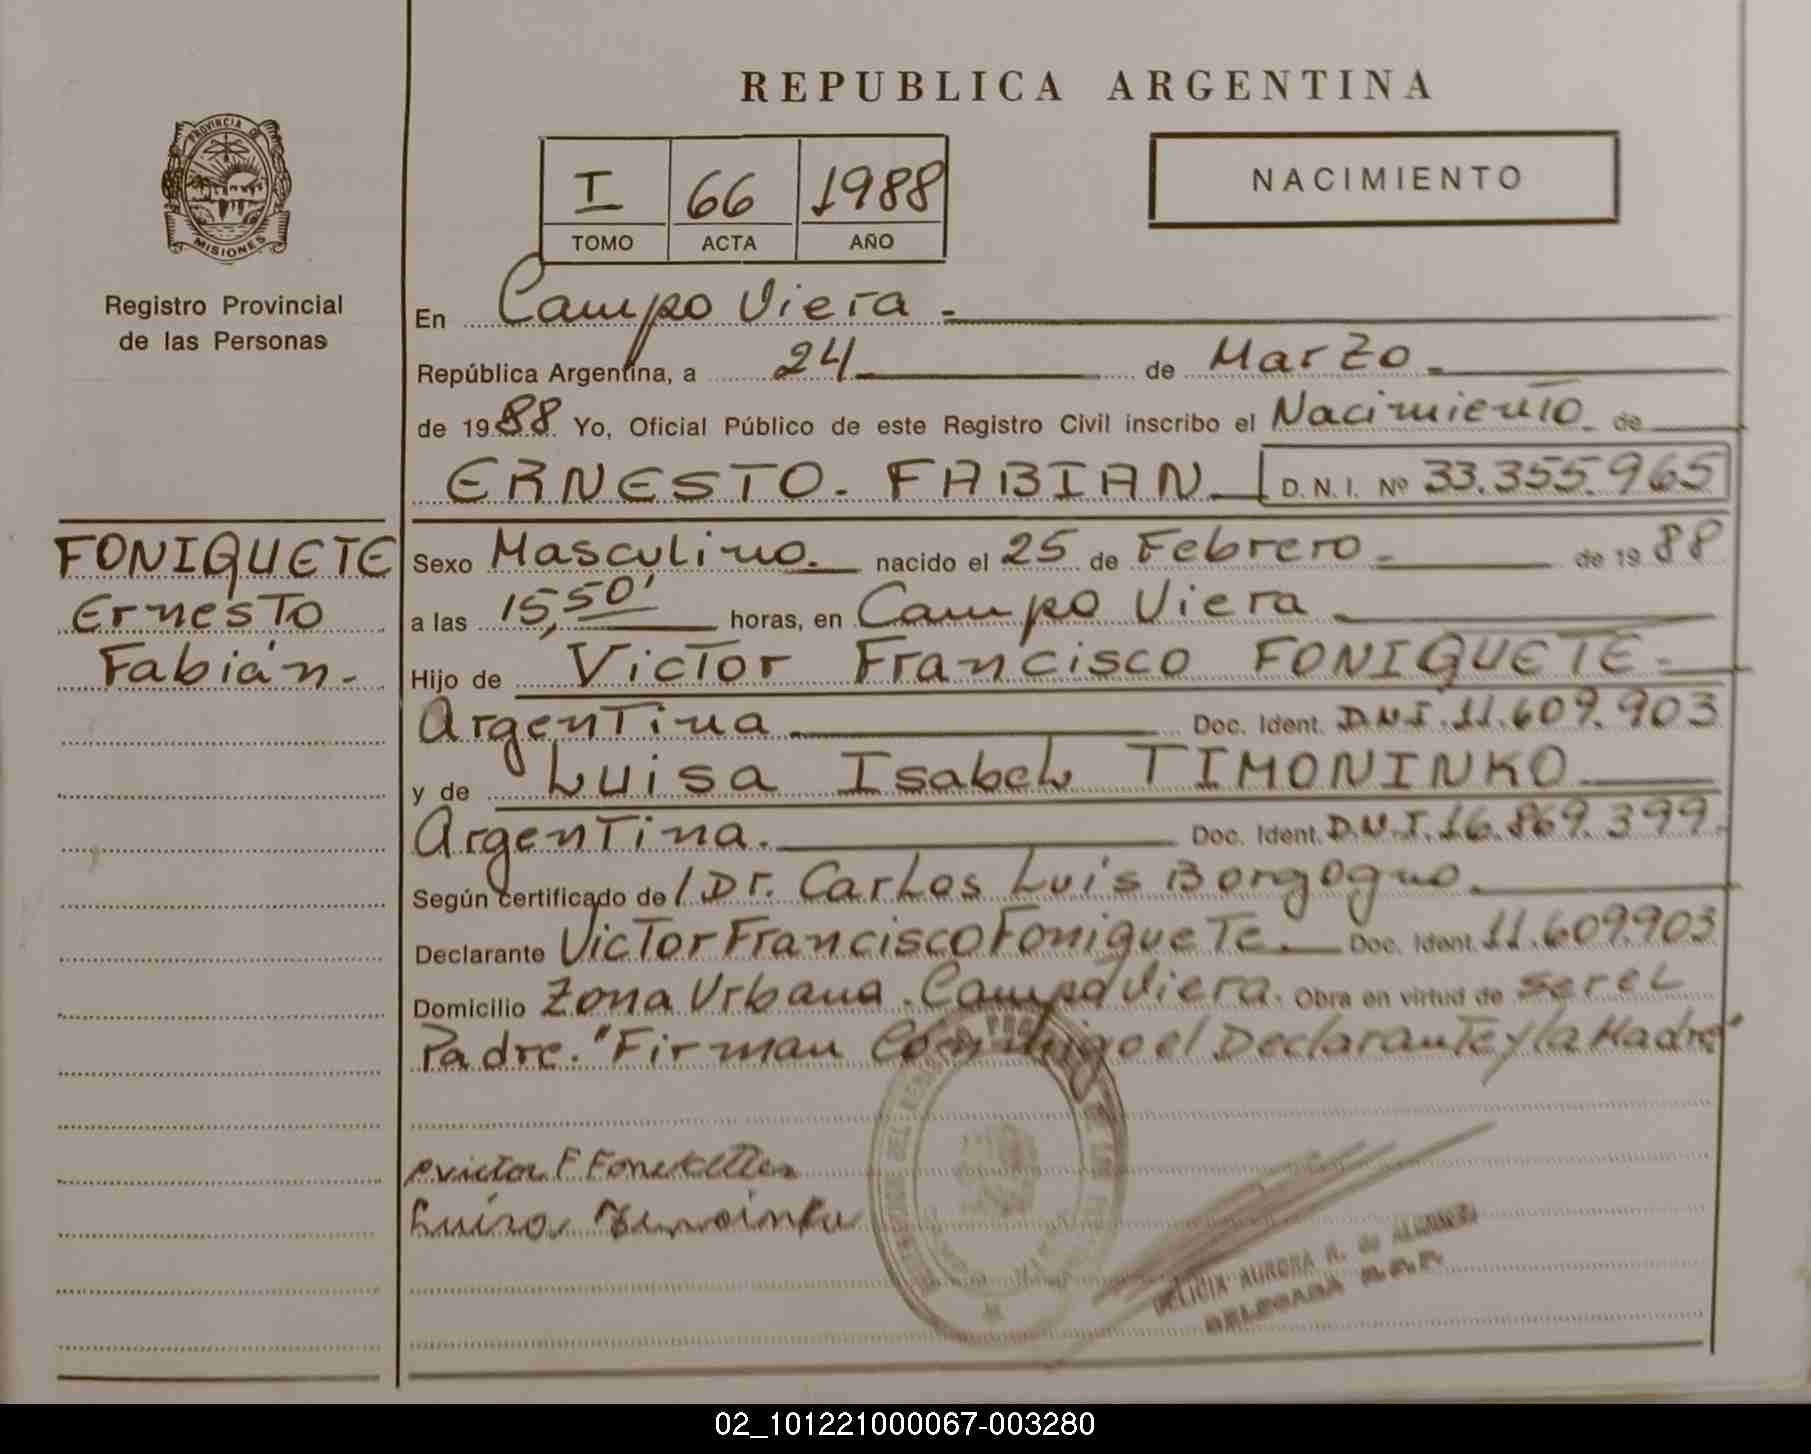 REPUBLICA ARGENTINA
PROVINCIA DE
MISIONES
Registro Provincial
de las Personas
I 66 1988
TOMO ACTA AÑO
NACIMIENTO
En Campo Viera.
República Argentina, a 24 de Marzo
de 1988 Yo, Oficial Público de este Registro Civil inscribo el Nacimiento de
ERNESTO. FABIAN D.N.I. Nº 33.355.965
FONIQUETE
Ernesto
Fabián.
Sexo Masculino. nacido el 25 de Febrero. de 1988
a las 15,50' horas, en Campo Viera
Hijo de Victor Francisco FONIQUETE.
Argentina Doc. Ident. D.N.I. 11.609.903
y de Luisa Isabel TIMONINKO
Argentina. Doc. Ident. D.N.I. 16.869.399.
Según certificado de / Dr. Carlos Luis Borgogno.
Declarante Victor Francisco Foniquete. Doc. Ident. 11.609.903
Domicilio Zona Urbana. Campo Viera. Obra en virtud de ser el
Padre. "Firman Conmigo el Declarante y la Madre"
F
Luisa
AURORA R. de
DELEGADA
02_101221000067-003280